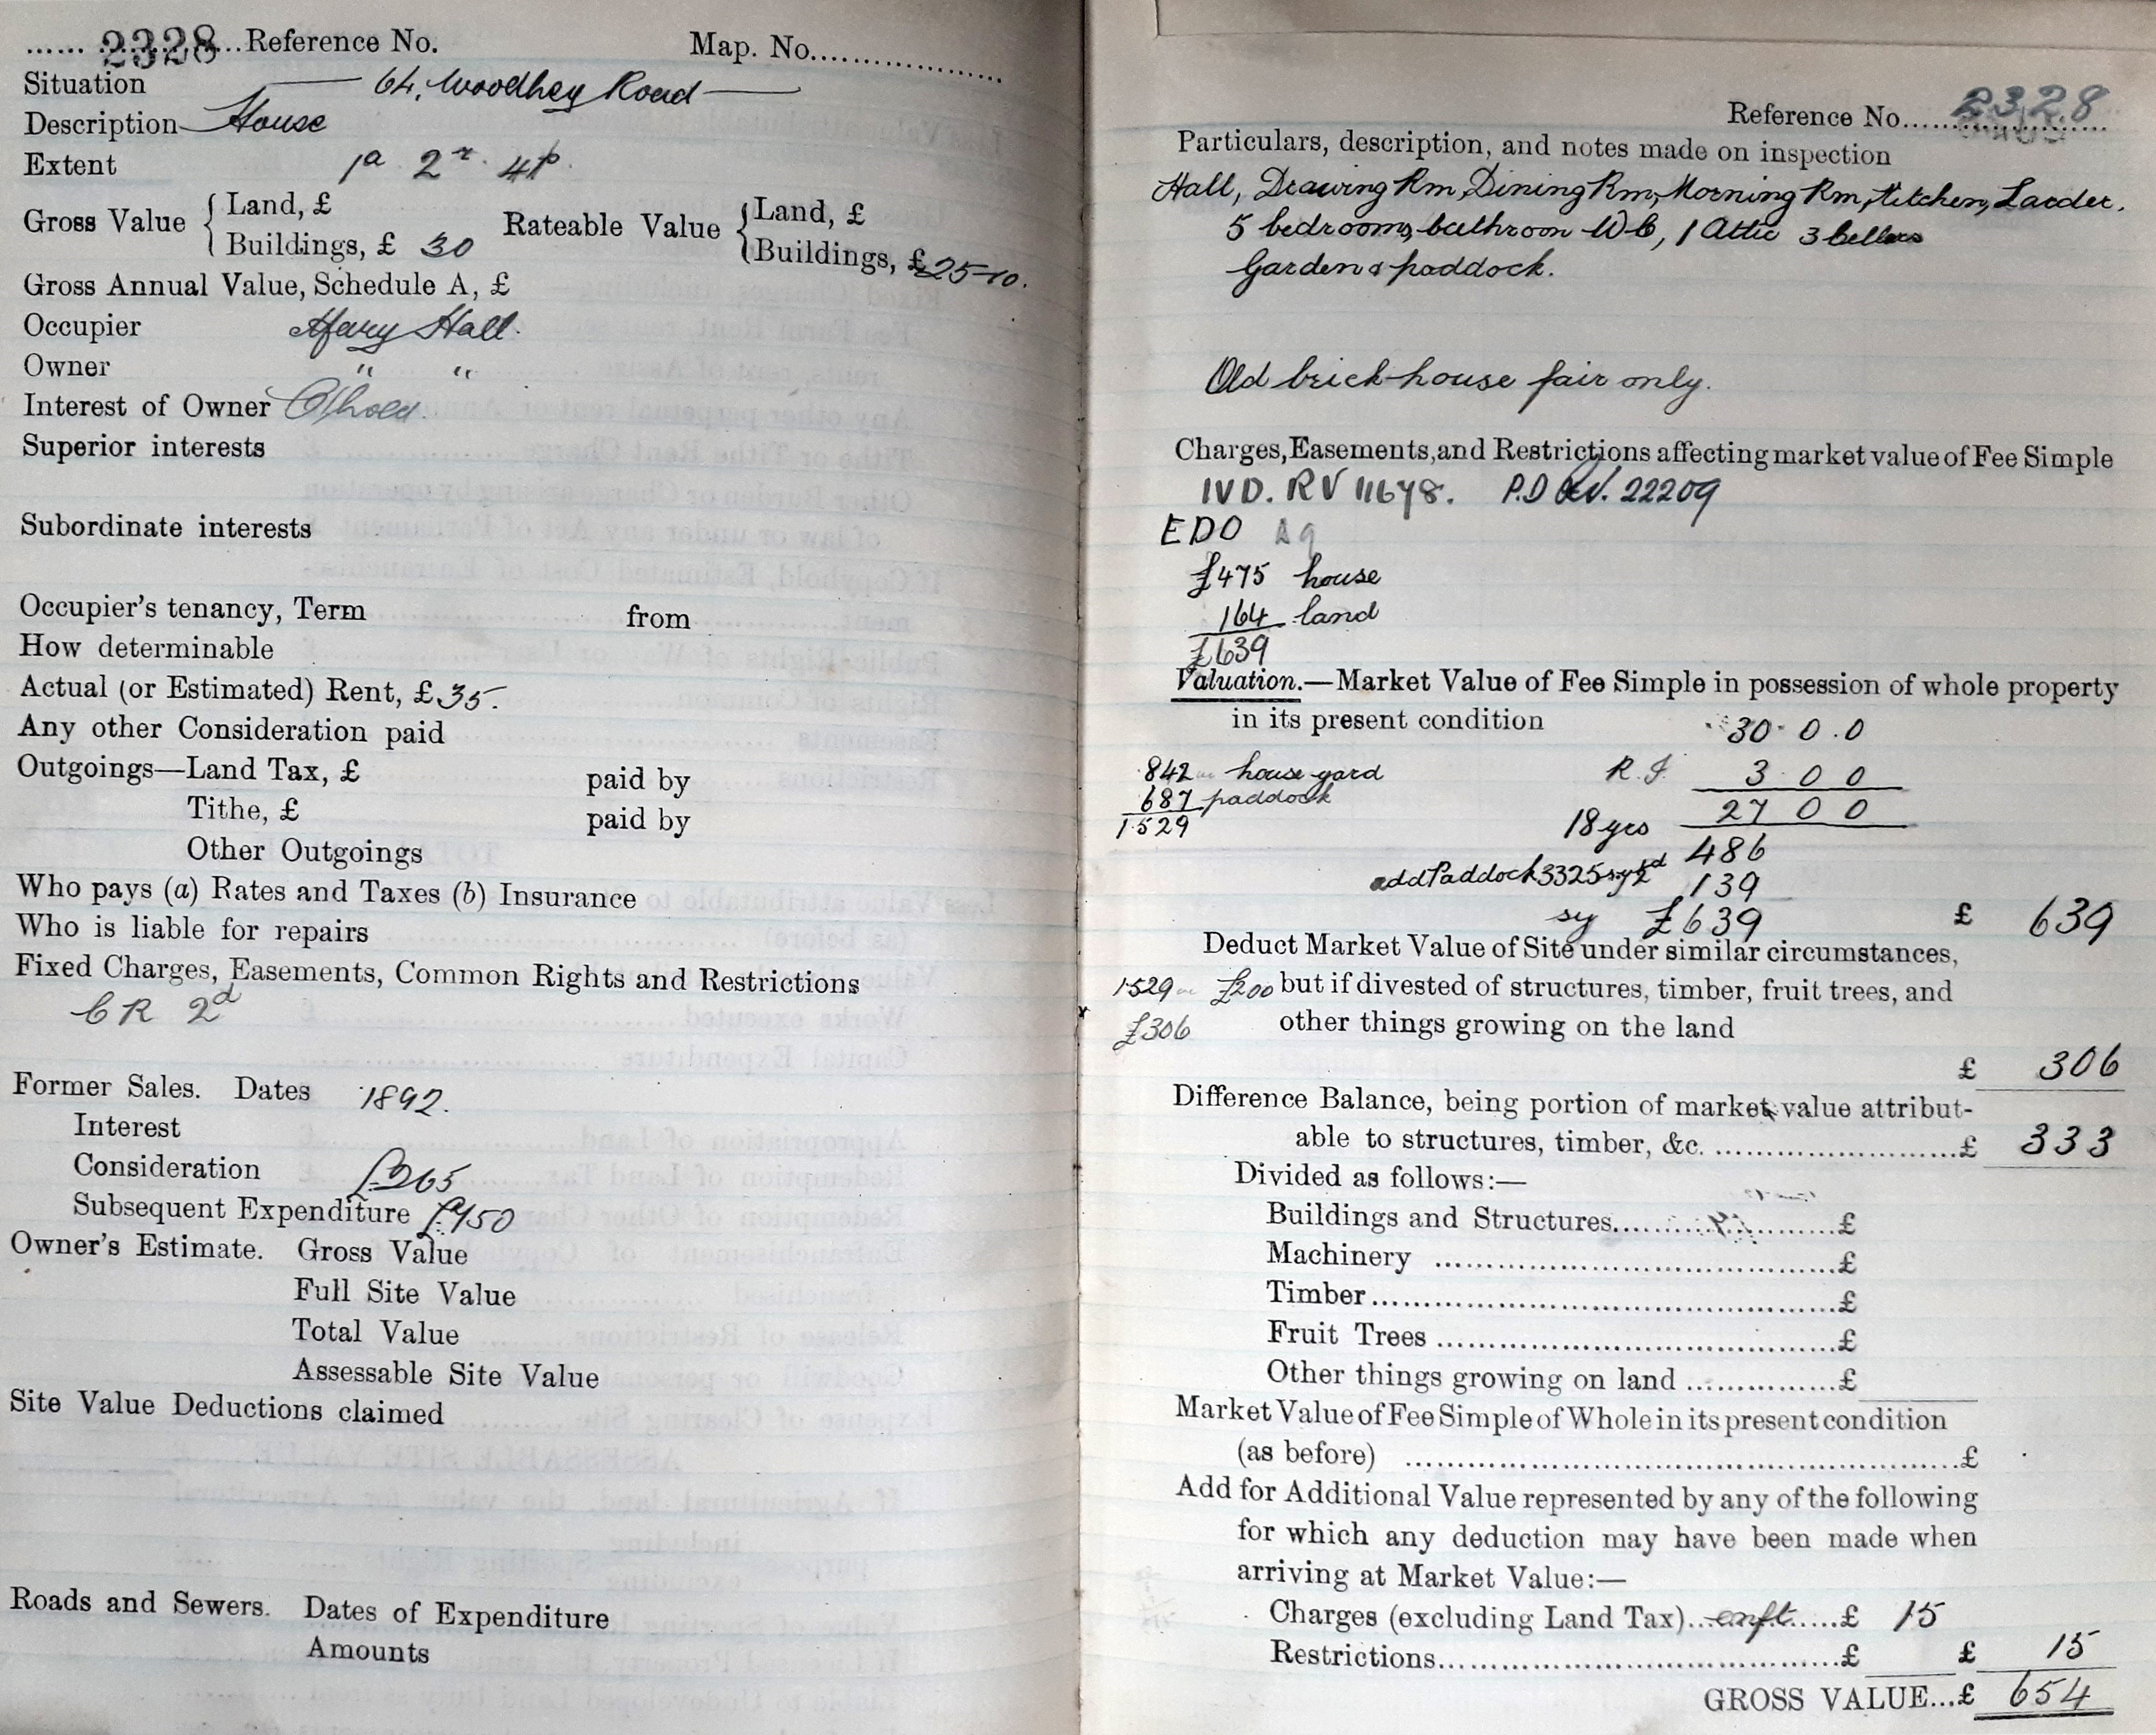 2328 Reference No. Map. No.
Situation 64, Woodhey Road
Description House
Extent 1a 2r 4p
Gross Value { Land, £ Rateable Value { Land, £
Buildings, £ 30 Buildings, £ 25-10.
Gross Annual Value, Schedule A, £
Occupier Mary Hall.
Owner " "
Interest of Owner C/hold.
Superior interests
Subordinate interests
Occupier's tenancy, Term from
How determinable
Actual (or Estimated) Rent, £ 35.
Any other Consideration paid
Outgoings—Land Tax, £ paid by
Tithe, £ paid by
Other Outgoings
Who pays (a) Rates and Taxes (b) Insurance
Who is liable for repairs
Fixed Charges, Easements, Common Rights and Restrictions
CR 2d
Former Sales. Dates 1892.
Interest
Consideration £265
Subsequent Expenditure £450
Owner's Estimate. Gross Value
Full Site Value
Total Value
Assessable Site Value
Site Value Deductions claimed
Roads and Sewers. Dates of Expenditure
Amounts
Reference No. 2328
Particulars, description, and notes made on inspection
Hall, Drawing Rm, Dining Rm, Morning Rm, Kitchen, Larder.
5 bedrooms, bathroom W C, 1 Attic 3 Cellars
Garden & paddock.
Old brick house fair only.
Charges, Easements, and Restrictions affecting market value of Fee Simple
IVD. RV 11678. P.D 22209
EDO Ag
£475 house
164 land
£639
Valuation.—Market Value of Fee Simple in possession of whole property
in its present condition 30. 0. 0
842 house yard R. I. 3 0 0
687 paddock 27 0 0
1529 18 yrs
486
add Paddock 3325 sy 2d 139
sy £639 £ 639
Deduct Market Value of Site under similar circumstances,
1529 £200 but if divested of structures, timber, fruit trees, and
£306 other things growing on the land
£ 306
Difference Balance, being portion of market value attribut-
able to structures, timber, &c. £ 333
Divided as follows:—
Buildings and Structures £
Machinery £
Timber £
Fruit Trees £
Other things growing on land £
Market Value of Fee Simple of Whole in its present condition
(as before) £
Add for Additional Value represented by any of the following
for which any deduction may have been made when
arriving at Market Value:—
Charges (excluding Land Tax) enft. £ 15
Restrictions £ £ 15
GROSS VALUE...£ 654